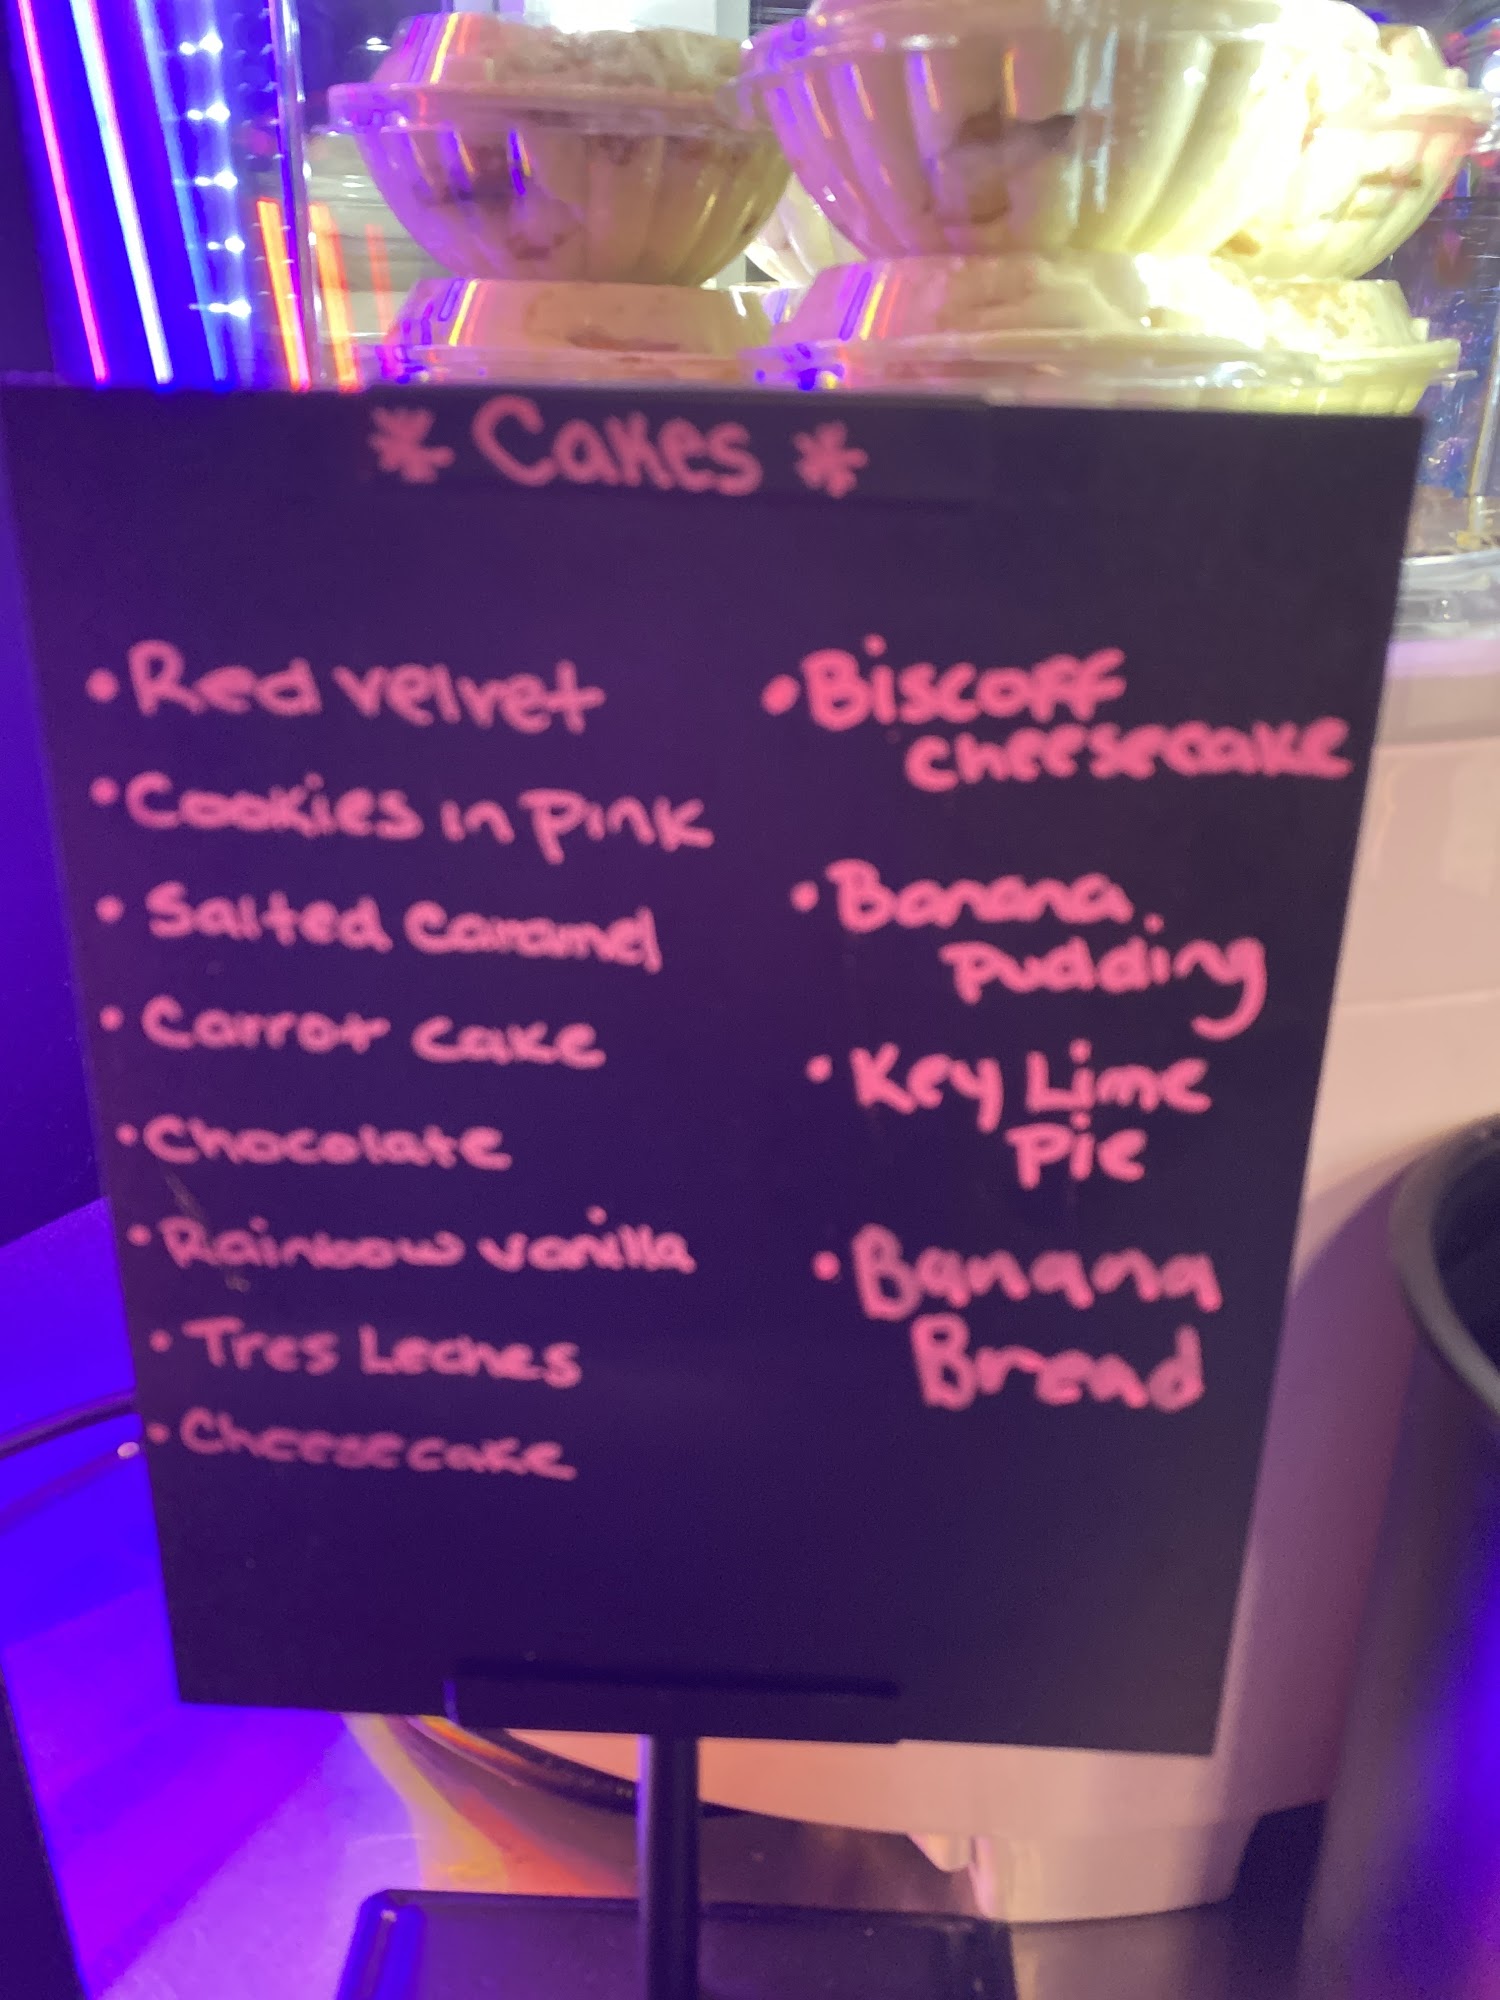 * Cakes *
• Red velvet
• Cookies in Pink
• Salted Caramel
• Carrot cake
• Chocolate
• Rainbow vanilla
• Tres Leches
• Cheesecake
• Biscoff
cheesecake
• Banana
Pudding
• Key Lime
Pie
• Banana
Bread